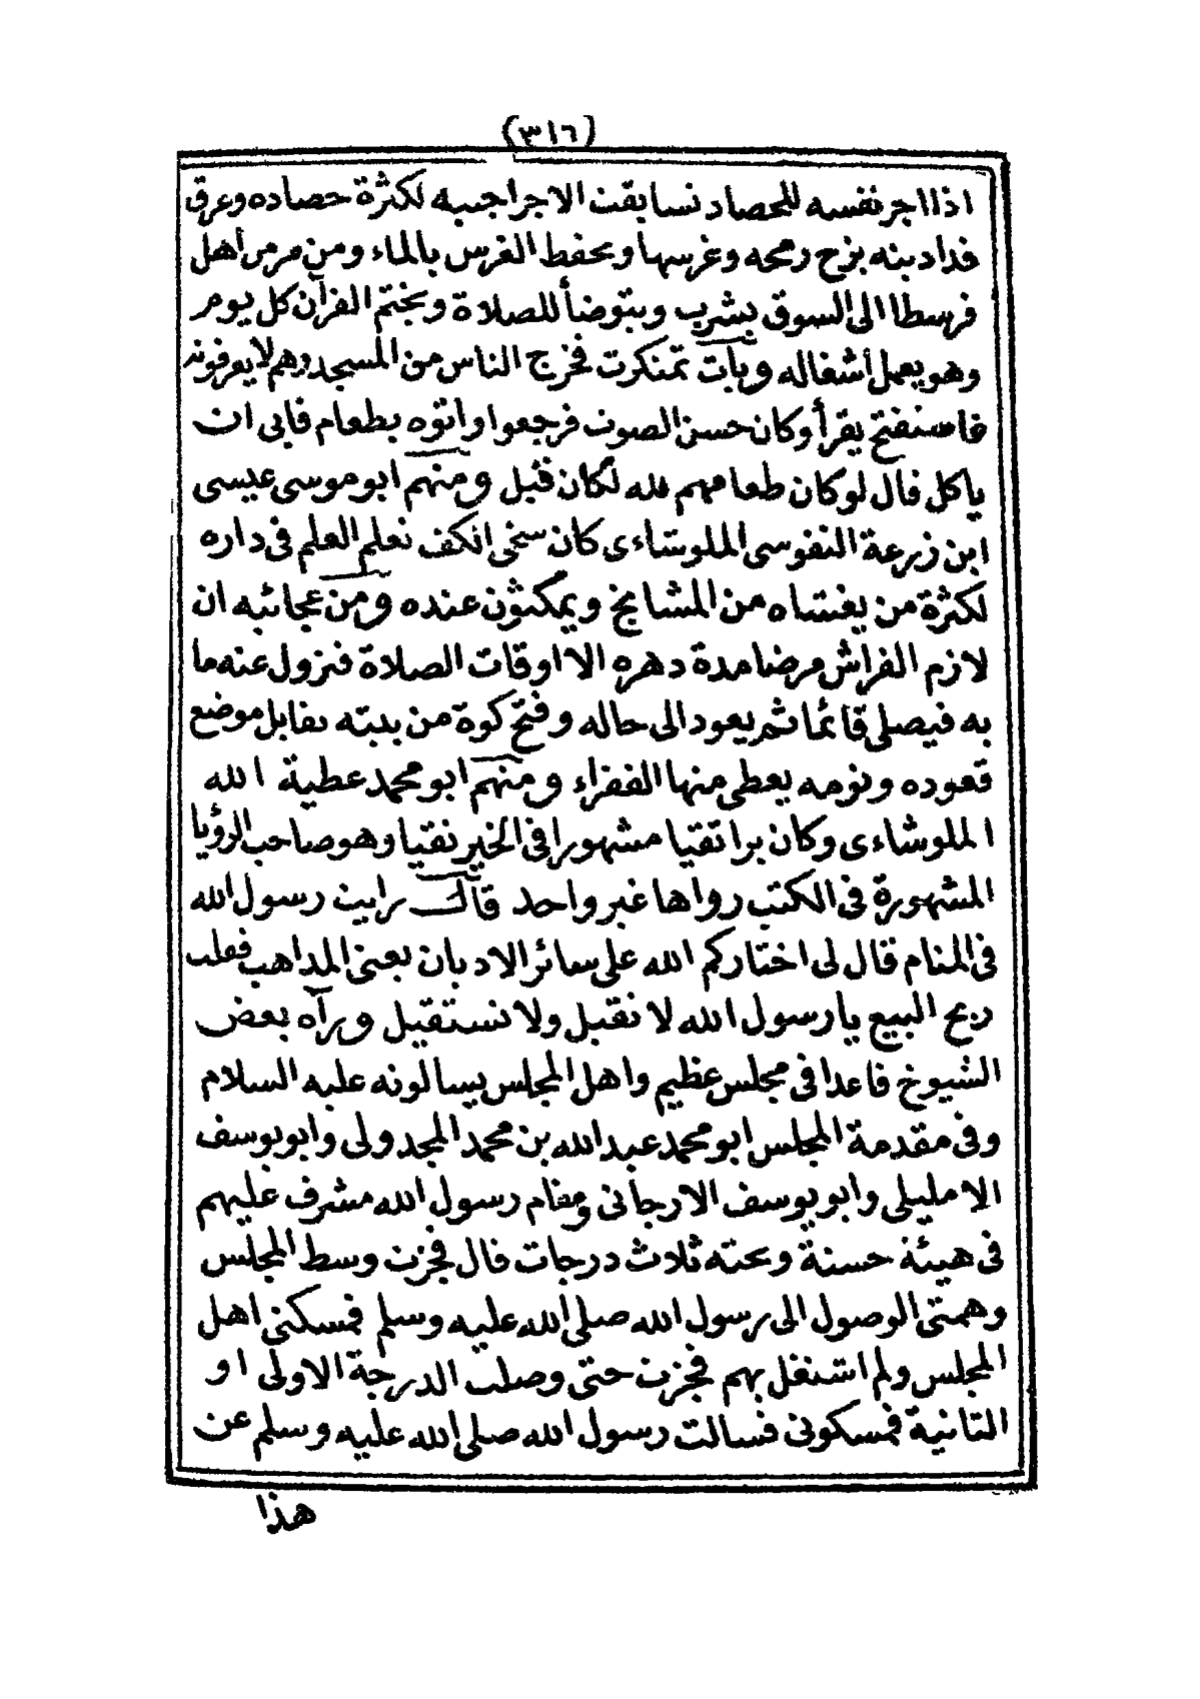 (٣١٦)
اذا اجر نفسه للحصاد تسابقت الاجراجنبه لكثرة حصاده وعرق
فدادينه بزج رمحه وغرسها ويحفط الغرس بالماء ومن مر من أهل
فرسطا الى السوق يشرب ويتوضأ للصلاة ويختم القرآن كل يوم
وهو يعمل أشغاله وبات تمنكرت فخرج الناس من المسجد وهم لا يعرفونه
فاستفتح يقرأ وكان حسن الصوت فرجعوا واتوه بطعام فابى ان
ياكل قال لو كان طعامهم لله لكان قبل ومنهم ابو موسى عيسى
ابن زرعة النفوسى الملوشاءى كان سخى الكف تعلم العلم فى داره
لكثرة من يغشاه من المشايخ ويمكثون عنده ومن عجائبه ان
لازم الفراش مرضا مدة دهره الا اوقات الصلاة فنزول عنه ما
به فيصلى قائما ثم يعود الى حاله وفتح كوة من بيته تقابل موضع
قعوده ونومه يعطى منها الفقراء ومنهم ابو محمد عطية الله
الملوشاءى وكان برا تقيا مشهورا فى الخير نقيا وهو صاحب الرؤيا
المشهورة فى الكتب رواها غير واحد قال رايت رسول الله
فى المنام قال لى اختاركم الله على سائر الاديان يعنى المذاهب فقلت
ربح البيع يا رسول الله لا نقيل ولا نستقيل ورآه بعض
الشيوخ قاعدا فى مجلس عظيم واهل المجلس يسالونه عليه السلام
وفى مقدمة المجلس ابو محمد عبد الله بن محمد المجدولى وابو يوسف
الامليلى وابو يوسف الارجانى ومقام رسول الله مشرف عليهم
فى هيئة حسنة وتحته ثلاث درجات قال فجزت وسط المجلس
وهمتى الوصول الى رسول الله صلى الله عليه وسلم فمسكنى اهل
المجلس ولم اشتغل بهم فجزت حتى وصلت الدرجة الاولى او
الثانية فمسكونى فسالت رسول الله صلى الله عليه وسلم عن
هذا